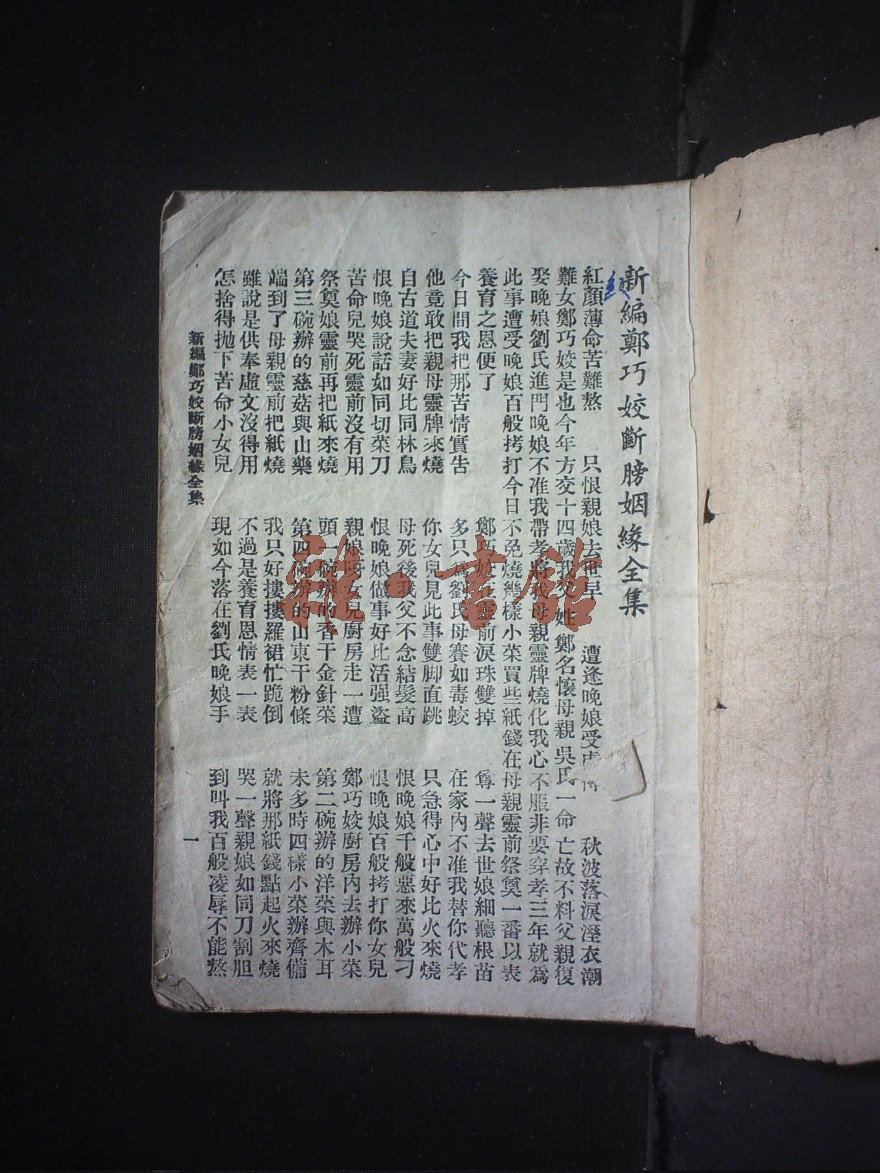 新編鄭巧姣斷膀姻緣全集
紅顏薄命苦難熬 只恨親娘去世早 遭逢晚娘受 秋波落淚溼衣潮
難女鄭巧姣是也今年方交十四歲我父姓鄭名懷母親吳氏一命亡故不料父親復
娶晚娘劉氏進門晚娘不准我帶孝將我母親靈牌燒化我心不服非要穿孝三年就為
此事遭受晚娘百般拷打今日不免燒幾樣小菜買些紙錢在母親靈前祭奠一番以表
養育之恩便了 鄭巧姣 靈前淚珠雙掉 尊一聲去世娘細聽根苗
今日間我把那苦情實告 多只為劉氏母賽如毒蛟 在家內不准我替你代孝
他竟敢把親母靈牌來燒 你女兒見此事雙脚直跳 只急得心中好比火來燒
自古道夫妻好比同林鳥 母死後我父不念結髮高 恨晚娘千般惡來萬般刁
恨晚娘說話如同切菜刀 恨晚娘做事好比活强盜 恨晚娘百般拷打你女兒
苦命兒哭死靈前沒有用 親娘呀女兒厨房走一遭 鄭巧姣厨房內去辦小菜
祭奠娘靈前再把紙來燒 頭一碗辦的香干金針菜 第二碗辦的洋菜與木耳
第三碗辦的慈菇與山藥 第四碗辦的山東干粉條 未多時四樣小菜辦齊備
端到了母親靈前把紙燒 我只好摟摟羅裙忙跪倒 就將那紙錢點起火來燒
雖說是供奉虛文沒得用 不過是養育恩情表一表 哭一聲親娘如同刀割胆
怎捨得拋下苦命小女兒 現如今落在劉氏晚娘手 到叫我百般凌辱不能熬
新編鄭巧姣斷膀姻緣全集 一
雜·書館